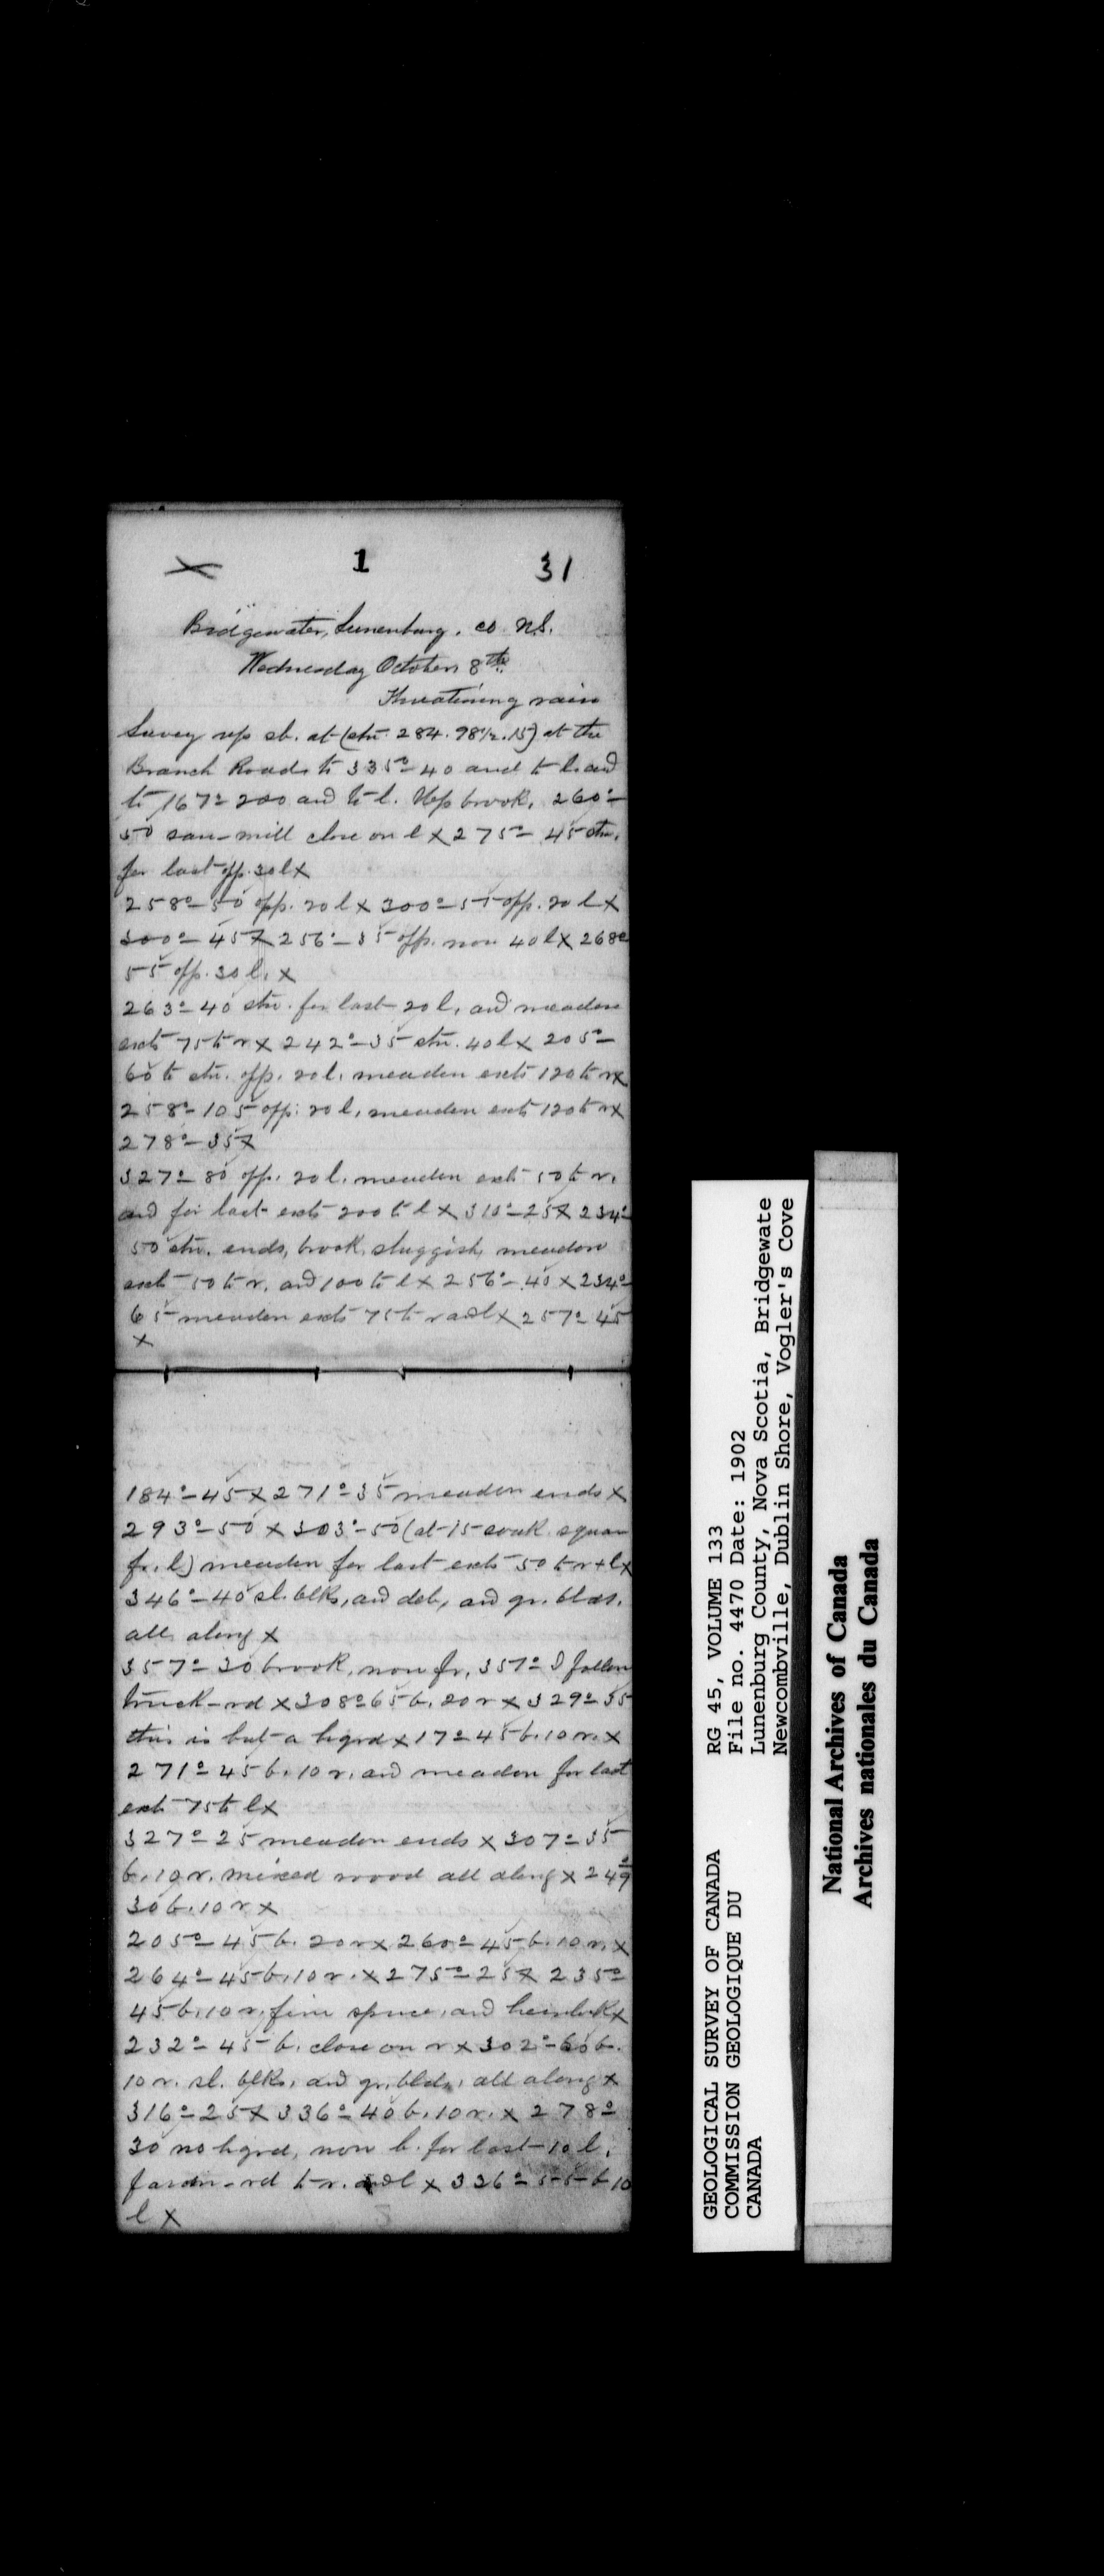 1 31
Bridgewater, Lunenburg. co N.S.
Wednesday October 8th
Threatining rain
Survey up sb. at (stn. 284.98½.15) at the
Branch Roads to 335°-40 and to l. and
to 167°-200 and to l. Up brook, 260°-
50 saw-mill close on l x 275°-45 stn.
for last opp. 30 l x
258°-50 opp. 20 l x 300°-55 opp. 20 l x
300°-45 x 256°-35 opp. now 40 l x 268°
55 opp. 30 l. x
263°-40 stn. for last 20 l, and meadow
exts 75 to r x 242°-35 stn. 40 l x 205°-
60 to stn. opp. 20 l. meadow exts 120 to r x
258°-105 opp. 20 l, meadow exts 120 to r x
278°-35 x
327°-80 opp. 20 l. meadow exts 50 to r.
and for last exts 200 to l x 310°-25 x 234°
50 stn. ends, brook, sluggish, meadow
exts 50 to r. and 100 to l x 256°-40 x 234°-
65 meadow exts 75 to r and l x 257°-45
x
184°-45 x 271°-35 meadow ends x
293°-50 x 303°-50 (at 15 soak square
fr. l) meadow for last exts 50 to r + l x
346°-40 sl. blks, and deb, and gr. blds.
all along x
357°-30 brook, now fr, 357° I follow
truck-rd x 308°65 b. 20 r x 329°-35
this is but a hgrd x 17°-45 b. 10 r. x
271°-45 b. 10 r. and meadow for last
exts 75 to l x
327°-25 meadow ends x 307°-35
b. 10 r. mixed wood all along x 249°
30 b. 10 r x
205°-45 b. 20 r x 260°-45 b. 10 r. x
264°-45 b. 10 r. x 275°-25 x 235°
45 b. 10 r, fine spruce, and hemlock x
232°-45 b. close on r x 302°-60 b.
10 r. sl. blks, and gr. blds, all along x
316°-25 x 336°-40 b. 10 r. x 278°
30 no hgrd, now b. for last 10 l.
farm-rd to r. and l x 336°-55 b 10
l x
GEOLOGICAL SURVEY OF CANADA
COMMISSION GEOLOGIQUE DU
CANADA
RG 45, VOLUME 133
File no. 4470 Date: 1902
Lunenburg County, Nova Scotia, Bridgewate
Newcombville, Dublin Shore, Vogler's Cove
National Archives of Canada
Archives nationales du Canada